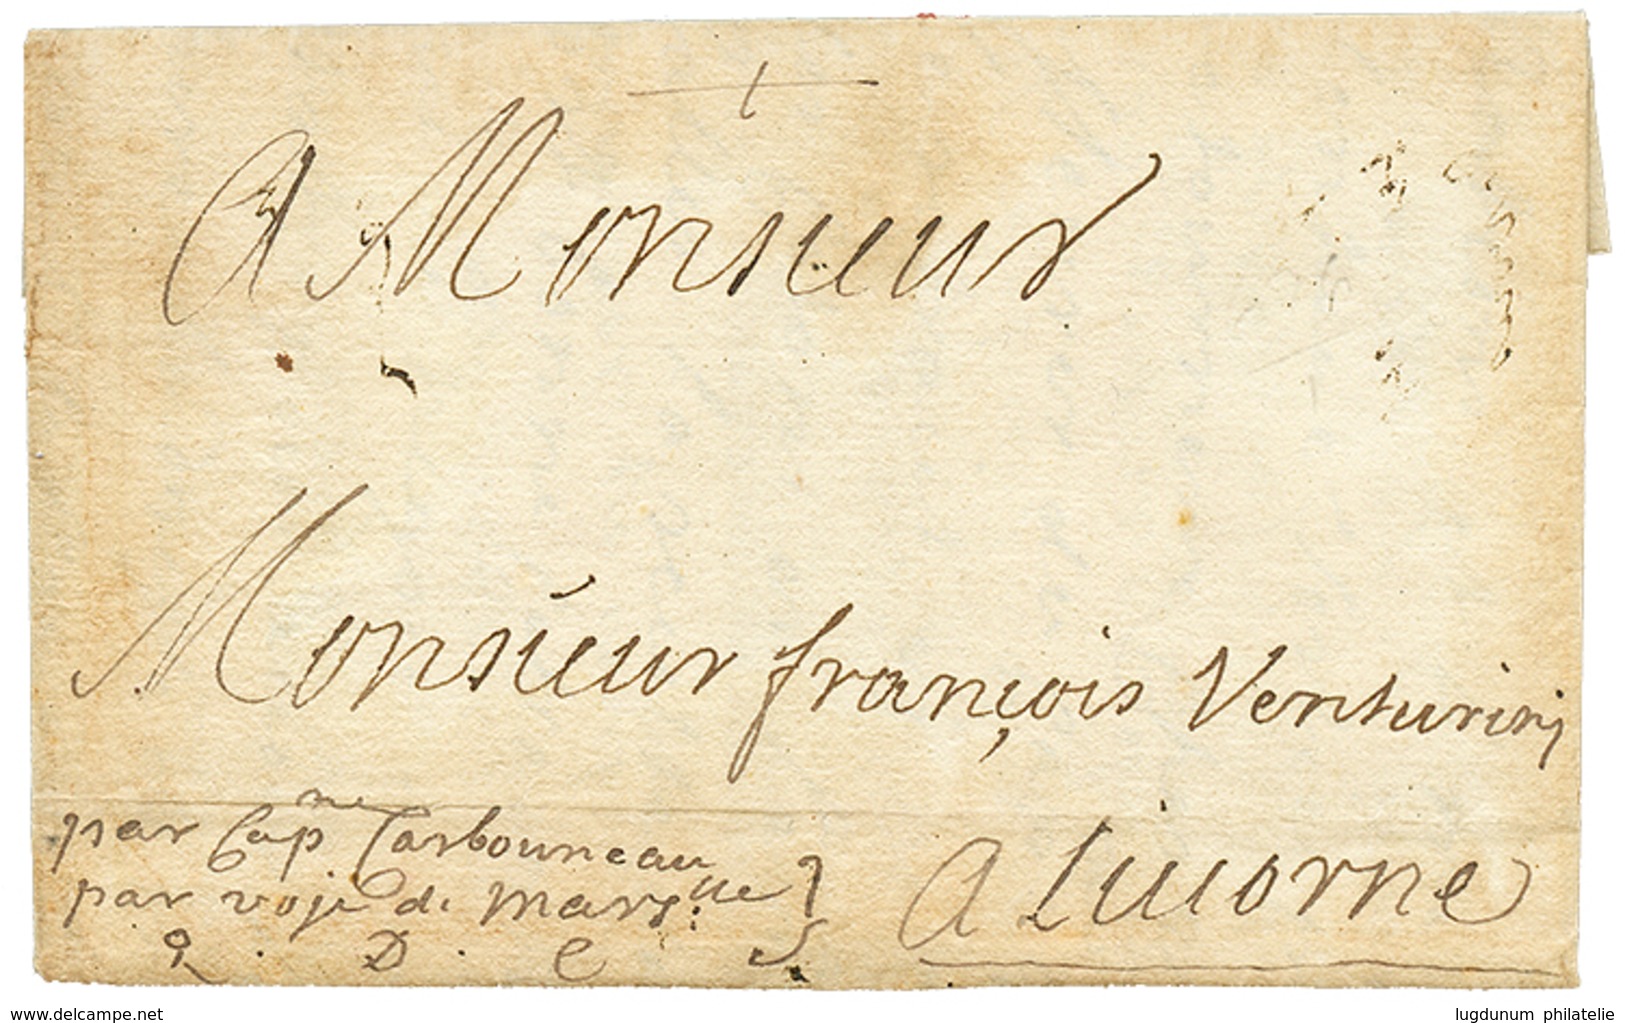 A Monsieur
Monsieur françois Venturinj
par Capne Carbouneau
par voje de Marslle
Q. D. C. S
A Livorne
www.delcampe.net
lugdunum philatelie